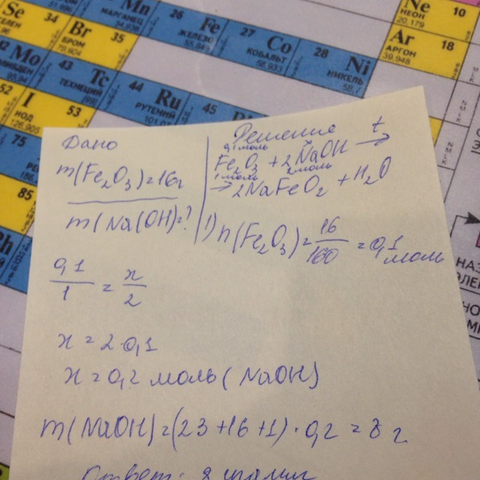 Se
34
Br
35
БРОМ
79,904
Mn
МАРГАНЕЦ
26
Fe
ЖЕЛЕЗО
27
Co
КОБАЛЬТ
58,933
28
Ni
НИКЕЛЬ
58,7
Ne
10
НЕОН
20,179
Ar
18
АРГОН
39,948
42
Mo
43
Tc
ТЕХНЕЦИЙ
44
Ru
РУТЕНИЙ
45
52
I
53
ИОД
126,905
75
85
НАЗ
ЭЛЕ
Дано
m(Fe₂O₃)=16г
m(Na(OH)=?
Решение
0,1 моль
Fe₂O₃ + 2NaOH →t
1 моль 2 моль
→ 2NaFeO₂ + H₂O
1) n(Fe₂O₃)=16/160=0,1 моль
0,1/1 = x/2
x = 2·0,1
x = 0,2 моль (NaOH)
m(NaOH)=(23+16+1)·0,2=8 г
Ответ: 8 грамм